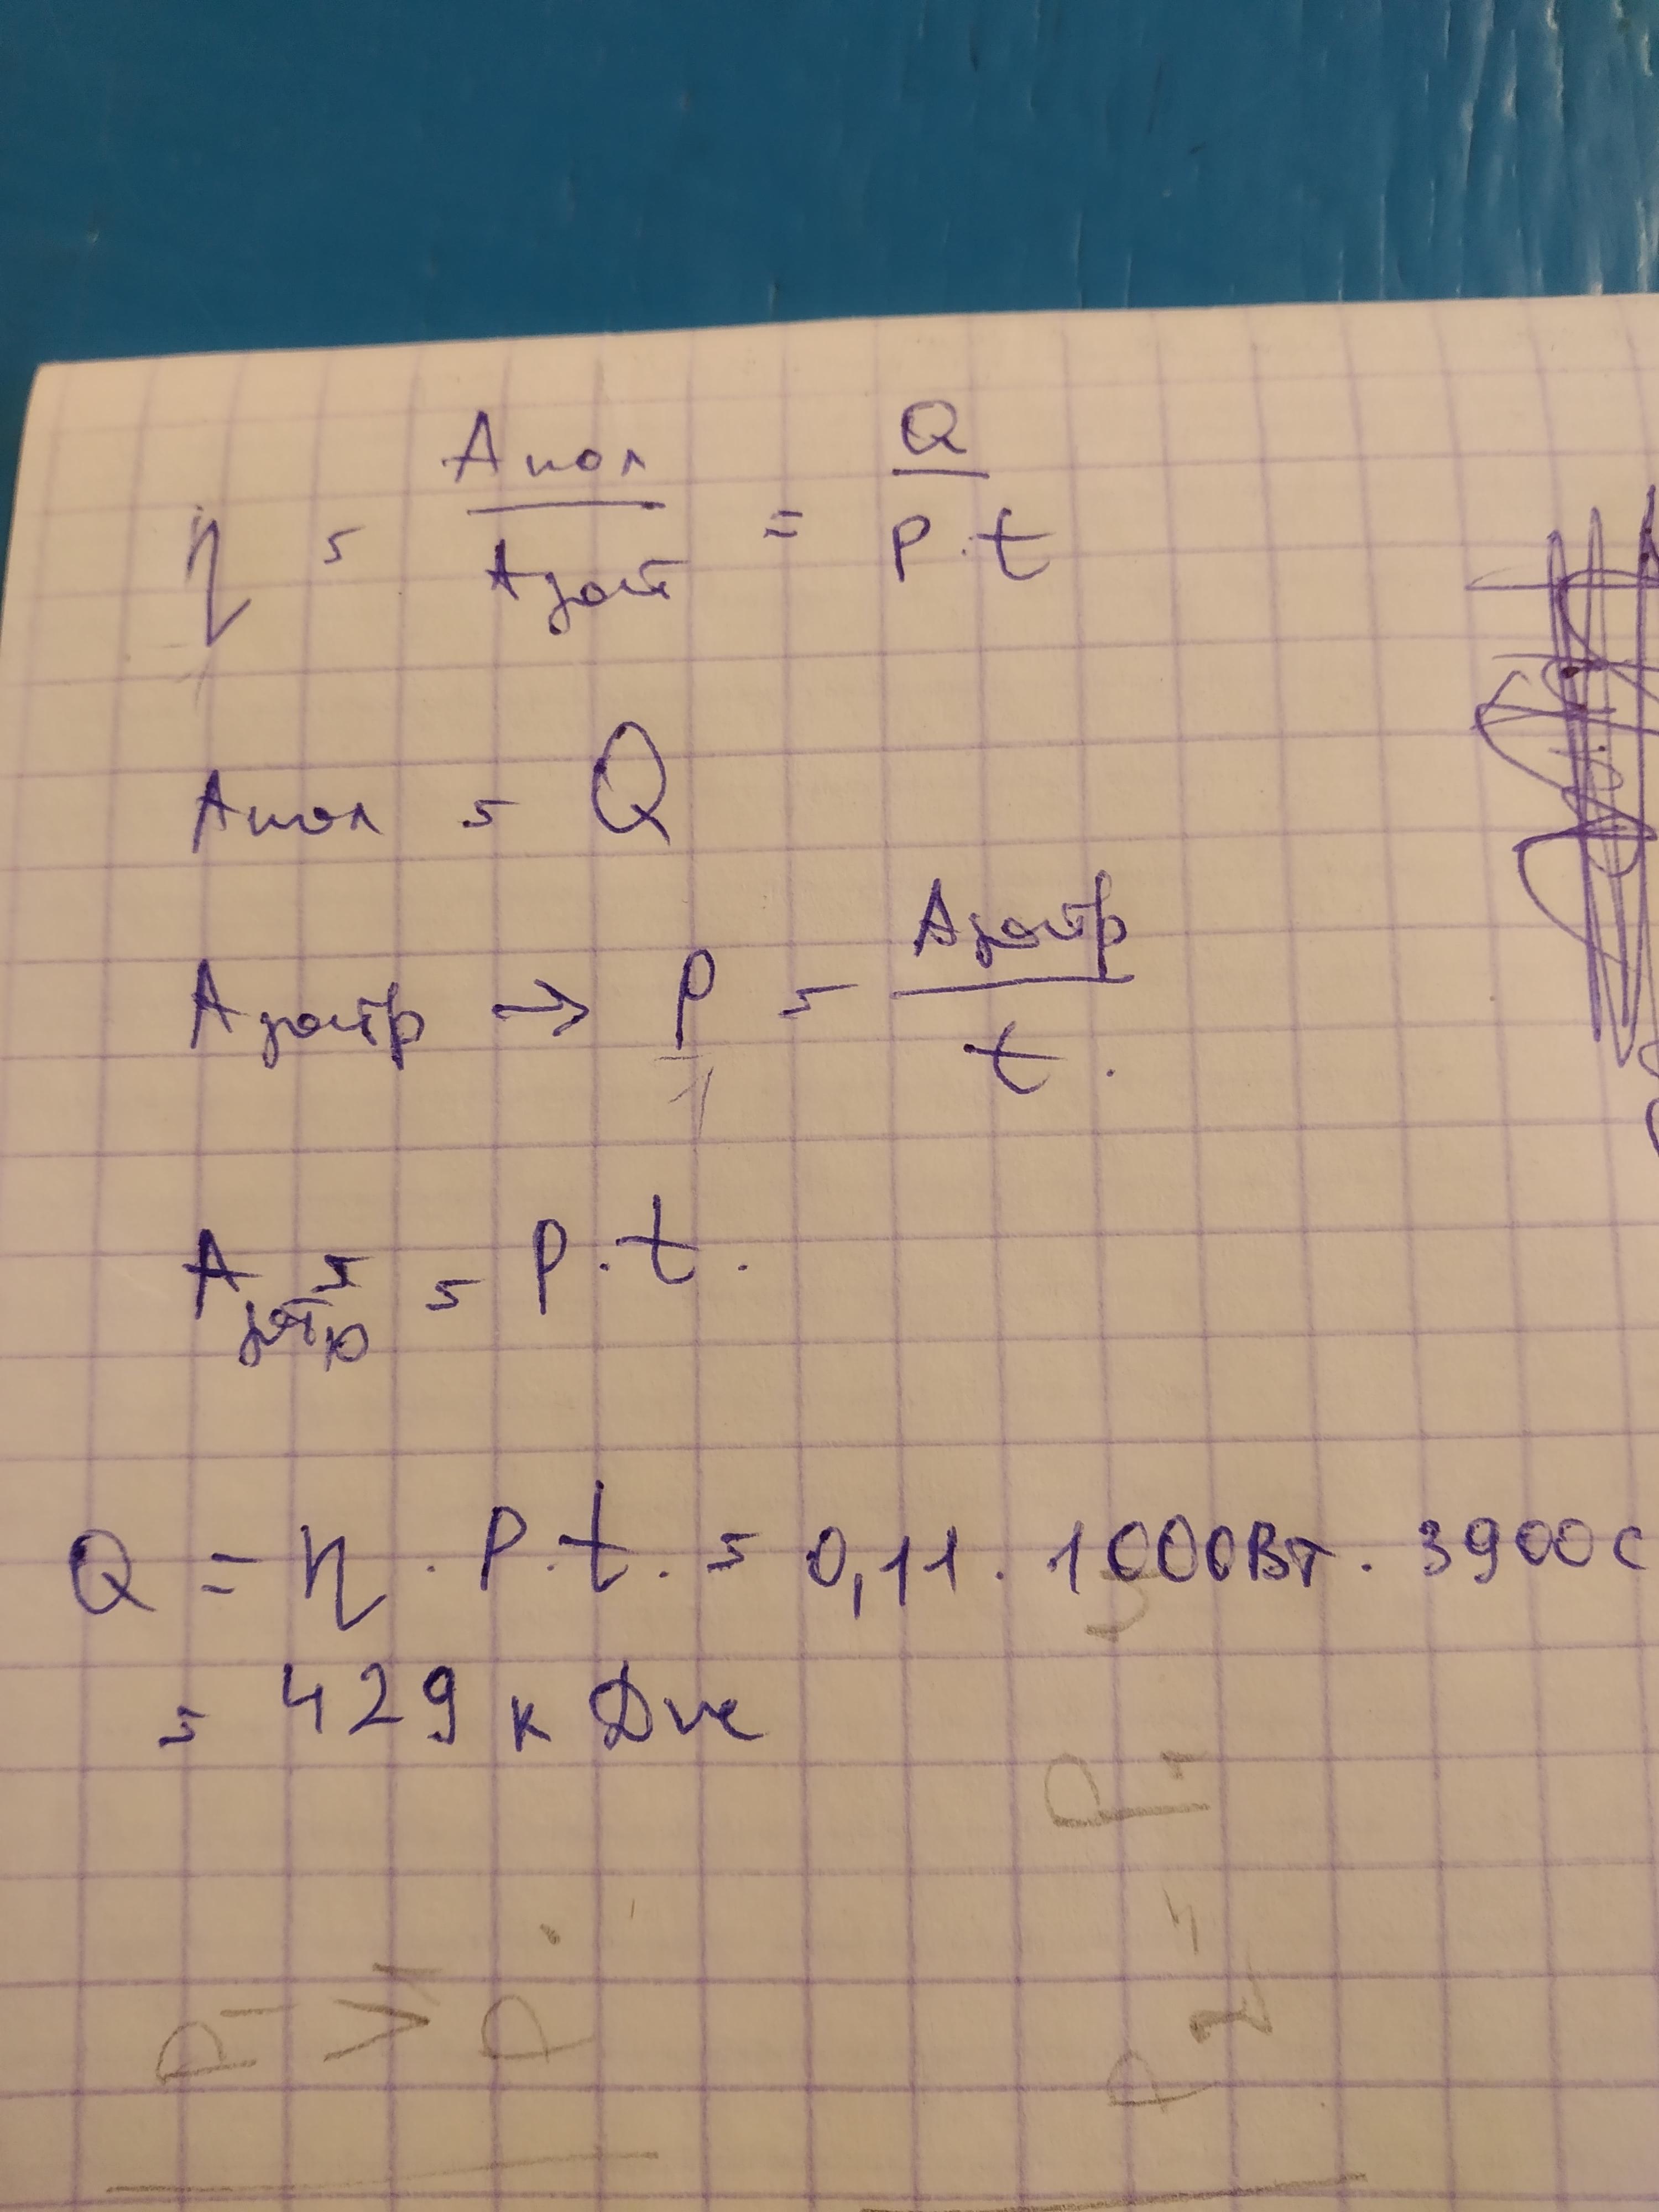 η = Aпол / Aзат = Q / P·t
Aпол = Q
Aзатр → P = Aзатр / t.
Aзатр = P·t.
Q = η · P·t. = 0,11 · 1000Вт · 3900 с
= 429 кДж